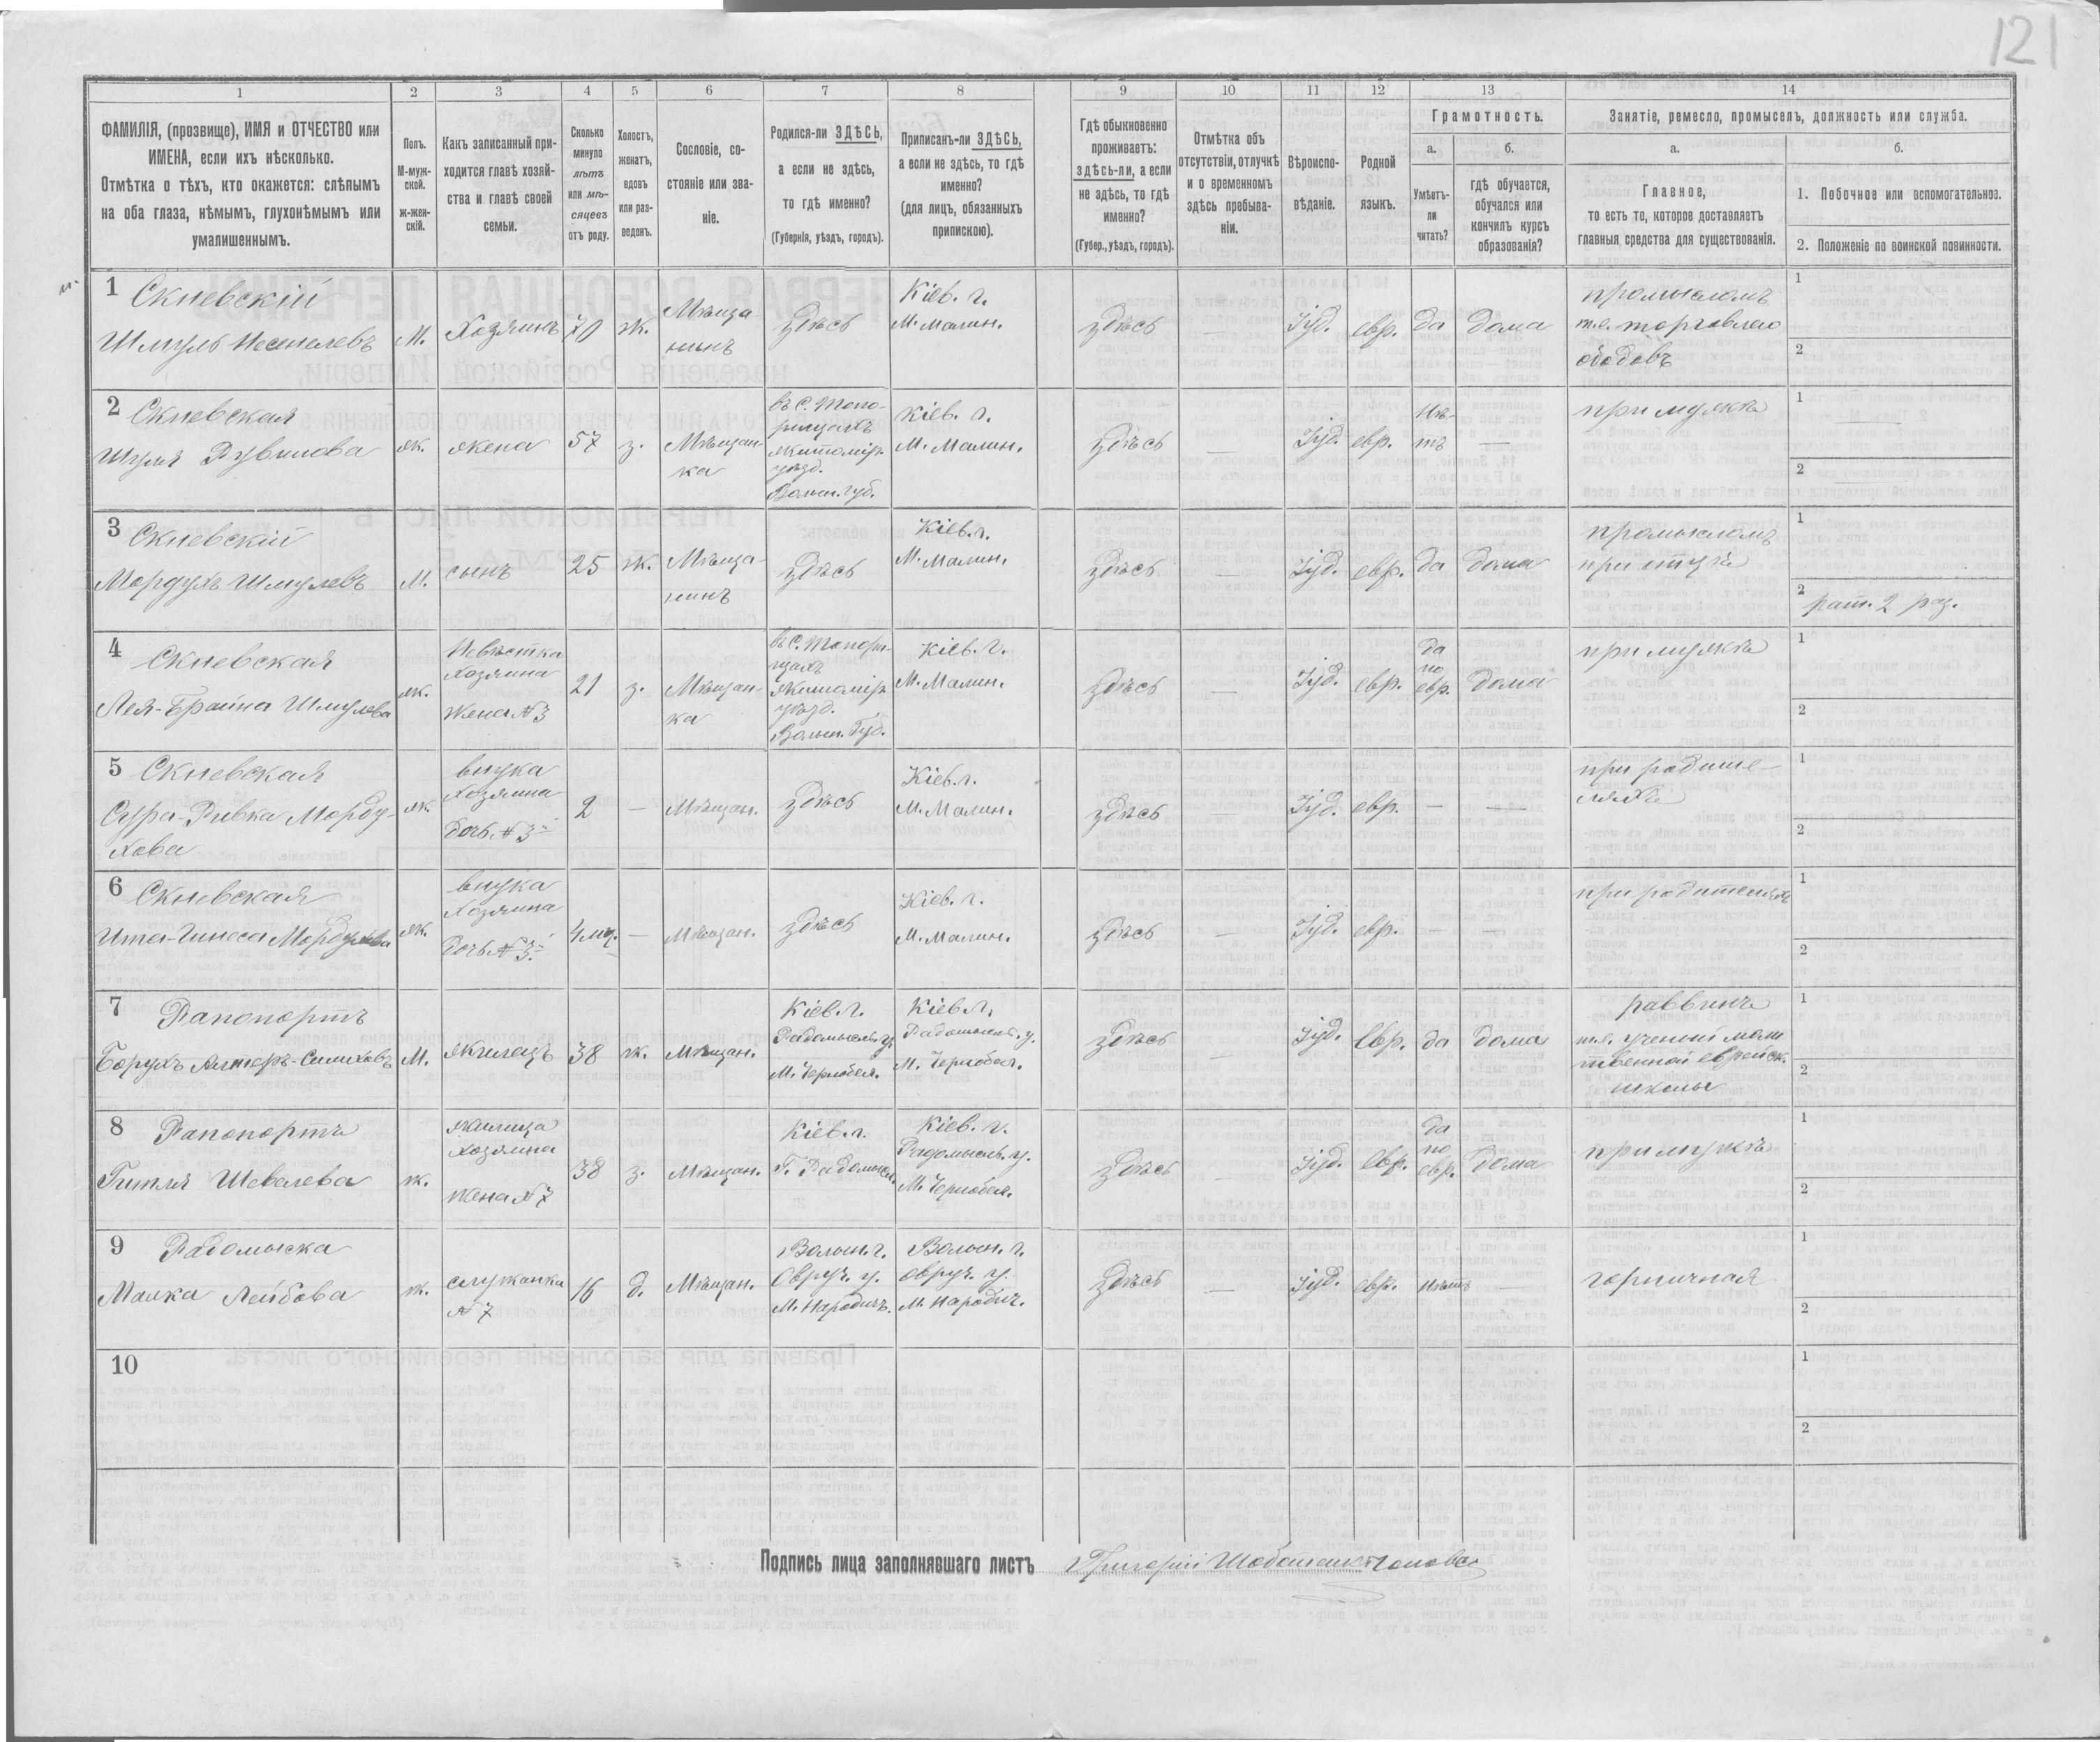 121
1 2 3 4 5 6 7 8 9 10 11 12 13 14
ФАМИЛІЯ, (прозвище), ИМЯ и ОТЧЕСТВО или
ИМЕНА, если ихъ нѣсколько.
Отмѣтка о тѣхъ, кто окажется: слѣпымъ
на оба глаза, нѣмымъ, глухонѣмымъ или
умалишеннымъ.
Полъ.
М-муж-
ской.
ж-жен-
скій.
Какъ записанный при-
ходится главѣ хозяй-
ства и главѣ своей
семьи.
Сколько
минуло
лѣтъ
или мѣ-
сяцевъ
отъ роду.
Холостъ,
женатъ,
вдовъ
или раз-
веденъ.
Сословіе, со-
стояніе или зва-
ніе.
Родился-ли ЗДѢСЬ,
а если не здѣсь,
то гдѣ именно?
(Губернія, уѣздъ, городъ).
Приписанъ-ли ЗДѢСЬ,
а если не здѣсь, то гдѣ
именно?
(для лицъ, обязанныхъ
припискою).
Гдѣ обыкновенно
проживаетъ:
здѣсь-ли, а если
не здѣсь, то гдѣ
именно?
(Губер., уѣздъ, городъ).
Отмѣтка объ
отсутствіи, отлучкѣ
и о временномъ
здѣсь пребыва-
ніи.
Вѣроиспо-
вѣданіе.
Родной
языкъ.
Грамотность.
а.
Умѣетъ-
ли
читать?
б.
гдѣ обучается,
обучался или
кончилъ курсъ
образованія?
Занятіе, ремесло, промыселъ, должность или служба.
а.
Главное,
то есть то, которое доставляетъ
главныя средства для существованія.
б.
1. Побочное или вспомогательное.
2. Положеніе по воинской повинности.
1 Скневскій
Шмуль
М.
Хозяинъ
70
ж.
Мѣща
нинъ
здѣсь
Кіев. г.
М. Малин.
здѣсь
—
Іуд.
евр.
да
дома
промысломъ
т.е. торговлею
1
2
2 Скневская
Шуля Рувинова
жк.
жена
57
з.
Мѣщан-
ка
въ С. Топо-
рищахъ
житомір.
уѣзд.
Волын. губ.
Кіев. г.
М. Малин.
здѣсь
Іуд.
евр.
Нѣ-
тъ
—
при мужѣ
1
2
3 Скневскій
Мордухъ Шмулевъ
М.
сынъ
25
ж.
Мѣща-
нинъ
здѣсь
Кіев. г.
М. Малин.
здѣсь
—
Іуд.
евр.
да
дома
промысломъ
при отцѣ
1
2
рат. 2 раз.
4 Скневская
Лея-Брайна Шмулева
жк.
Невѣстка
хозяина
жена №3
21
з.
Мѣщан-
ка
въ С. Топори-
щахъ
житомір.
уѣзд.
Волын. Губ.
Кіев. г.
М. Малин.
здѣсь
—
Іуд.
евр.
да
по
евр.
дома
при мужѣ
1
2
5 Скневская
Сура-РивкаМорду-
хова
жк
внука
хозяина
дочь №3
2
—
Мѣщан.
здѣсь
Кіев. г.
М. Малин.
здѣсь
—
Іуд.
евр.
—
—
при родите-
ляхъ
1
2
6 Скневская
Мордухова
жк.
внука
хозяина
дочь №3.
4 мѣ.
—
Мѣщан.
здѣсь
Кіев. г.
М. Малин.
здѣсь
—
Іуд.
евр.
—
—
при родителяхъ
1
2
7 Рапопортъ
Борухъ Алтеръ-
М.
жилецъ
38
ж.
Мѣщан.
Кіев. г.
Радомысл. у.
М. Чернобыл.
Кіев. г.
Радомысл. у.
М. Чернобыл.
здѣсь
—
Іуд.
Евр.
да
дома
раввинъ
т.е. ученый
еврейск.
школы
1
2
8 Рапопортъ
Гитля Шевелева
ж.
жилица
хозяина
жена №7
38
з.
Мѣщан.
Кіев. г.
Г. Радомысл.
Кіев. г.
Радомысл. у.
М. Чернобыл.
здѣсь
—
Іуд.
Евр.
да
по
евр.
дома
при мужѣ
1
2
9 Радомыска
Малка Лейбова
ж.
служанка
№7
16
д.
Мѣщан.
Волын. г.
Овруч. у.
М. Народич.
Волын. г.
Овруч. у.
М. Народич.
здѣсь
—
Іуд.
евр.
Нѣтъ
—
горничная
1
2
10
1
2
Подпись лица заполнявшаго листъ Григорій